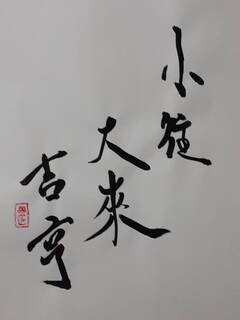 小往
大來
吉亨